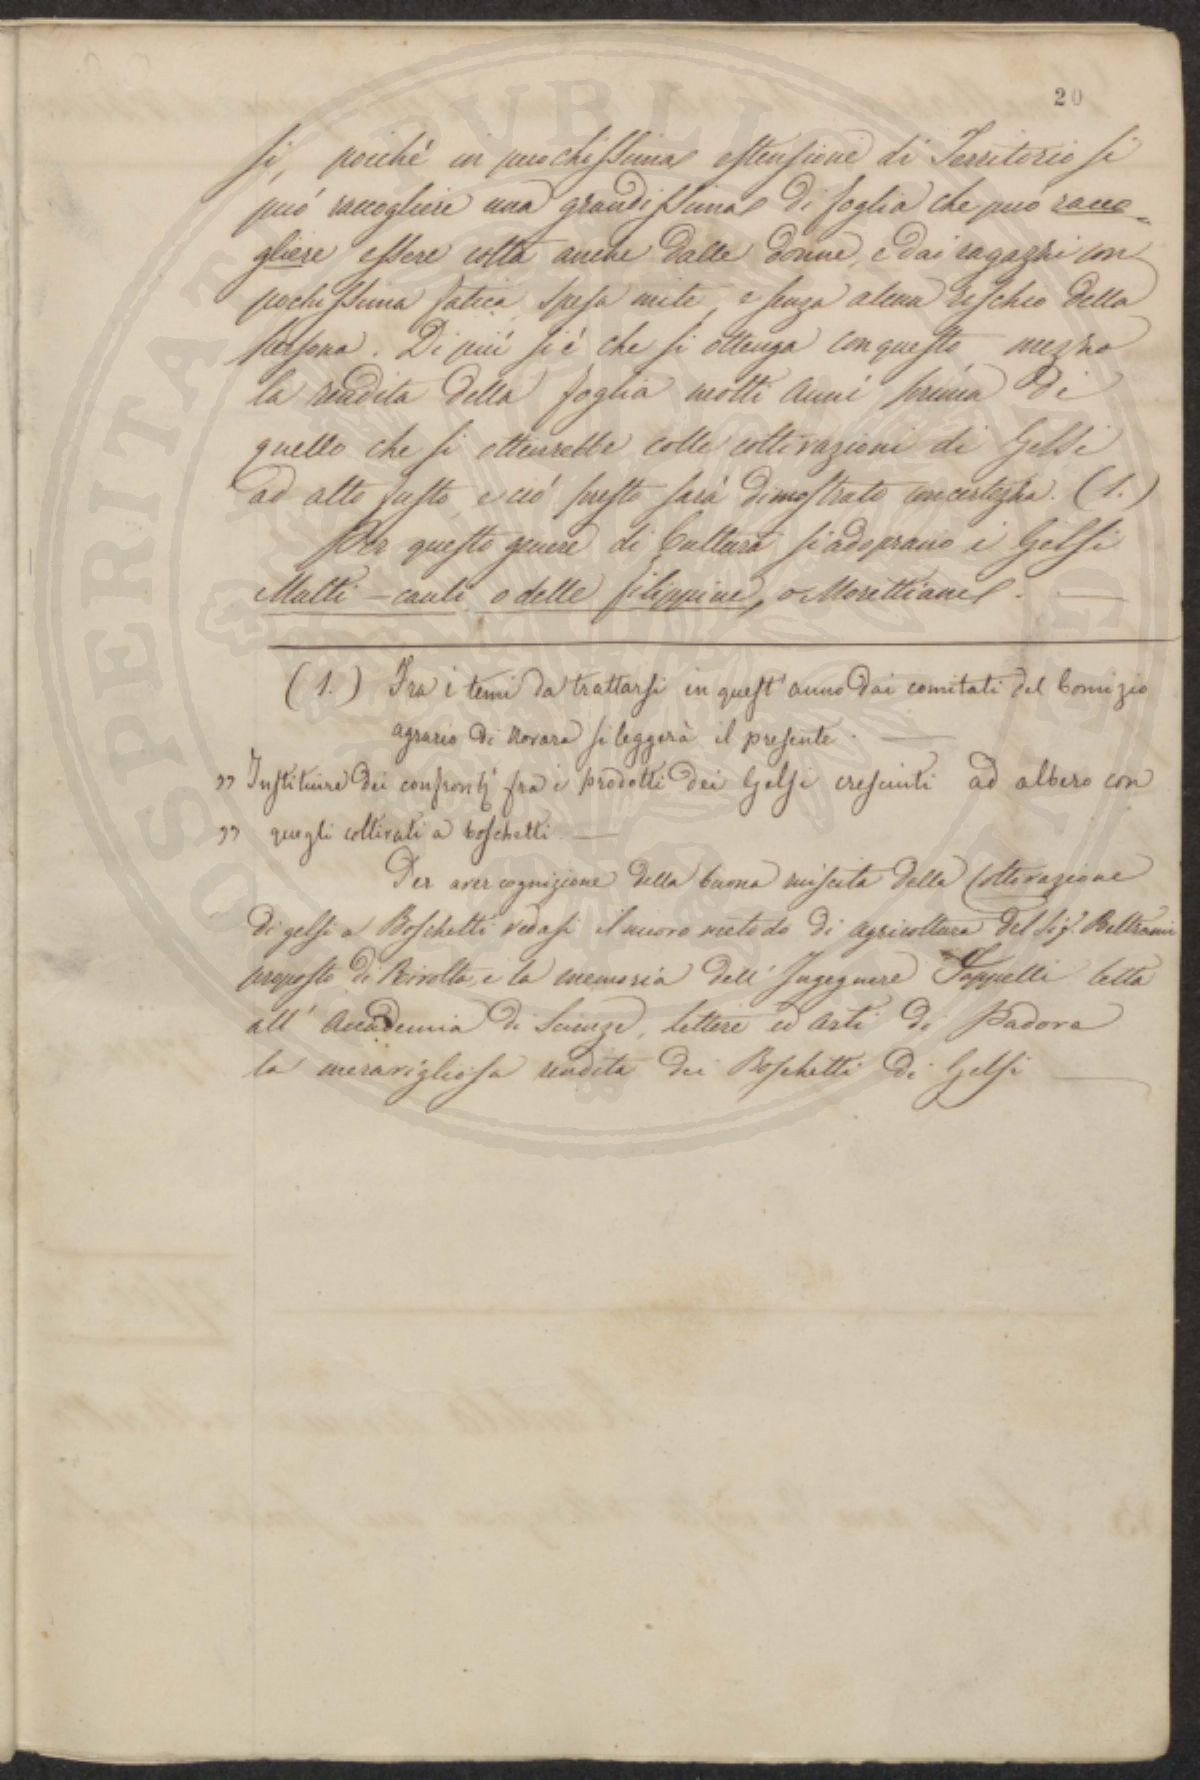 20
si, poiché in pochissima estensione di Territorio si
può raccogliere una grandissima di foglia che può racco-
gliere essere colta anche dalle donne, e dai ragazzi con
pochissima fatica, spesa mite, e senza alcun rischio della
persona. Di più si è che si ottenga con questo mezzo
la rendita della foglia molti anni prima di
quello che si otterrebbe colle coltivazioni di Gelsi
ad alto fusto, e ciò presto sarà dimostrato con certezza. (1.)
Per questo genere di Cultura si adoprano i Gelsi
Multi-cauli o delle filippine, o Morettiane.
(1.) Fra i temi da trattarsi in quest'anno dai comitati del Comizio
agrario di Novara si leggerà il presente.
" Instituire dei confronti fra i prodotti dei Gelsi cresciuti ad albero con
" quegli coltivati a boschetti.
Per aver cognizione della buona riuscita della Coltivazione
di gelsi a Boschetti vedasi il nuovo metodo di agricoltura del Sig.r Beltrami
proposto di Rivolta, e la memoria dell'Ingegnere letta
all'Accademia di Scienze, lettere ed arti di Padova
la meravigliosa rendita dei Boschetti di Gelsi
SPERITATIS PVBLI